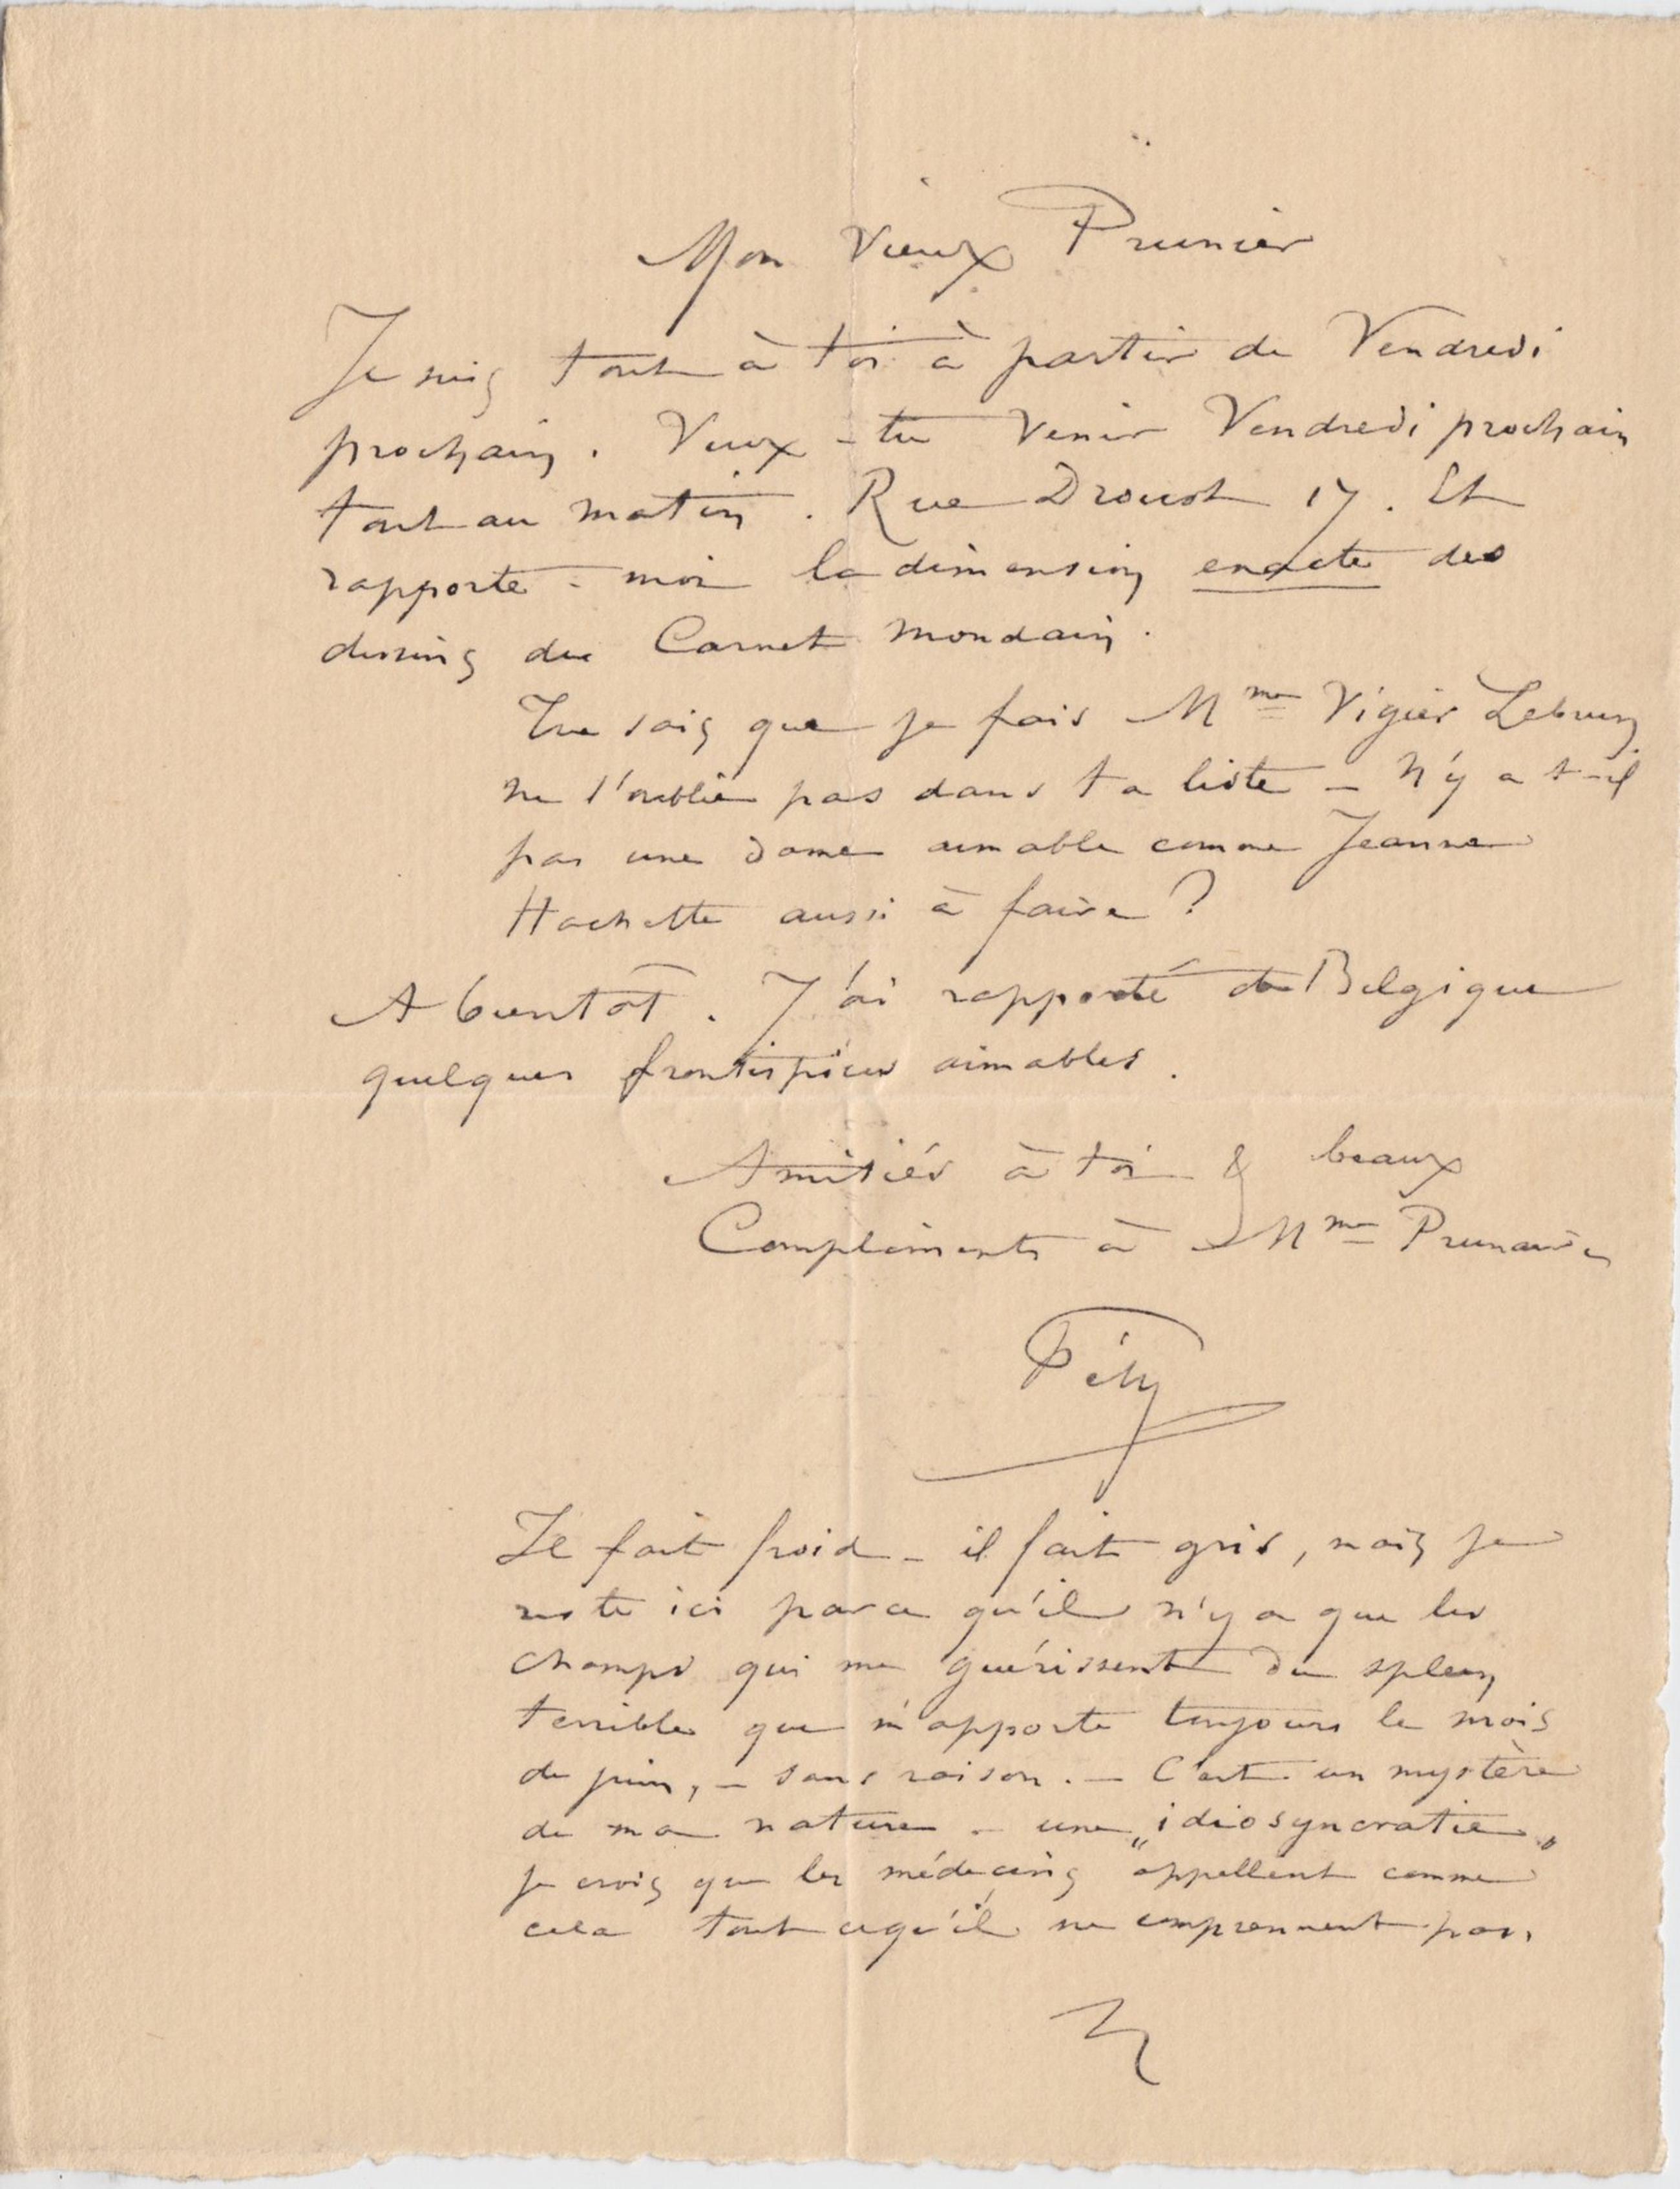 Mon Vieux Prunier
Je suis tout à toi à partir de Vendredi
prochain. Veux-tu venir Vendredi prochain
tout au matin. Rue Drouot 17. Et
rapporte-moi la dimension exacte des
dessins du Carnet mondain.
Tu sais que je fais Mme Vigier Lebrun
ne l'oublie pas dans ta liste – N'y a t-il
pas une dame aimable comme Jeanne
Hachette aussi à faire ?
A bientôt. J'ai rapporté de Belgique
quelques frontispices aimables.
Amitiés à toi & beaux
Compliments à Mme Prunaire
Fély
Il fait froid – il fait gris, mais je
reste ici parce qu'il n'y a que les
champs qui me guérissent du spleen
terrible que m'apporte toujours le mois
de juin, – sans raison. – C'est un mystère
de ma nature – une „idiosyncratie„
je crois que les médecins appellent comme
cela tout ce qu'il ne comprennent pas.